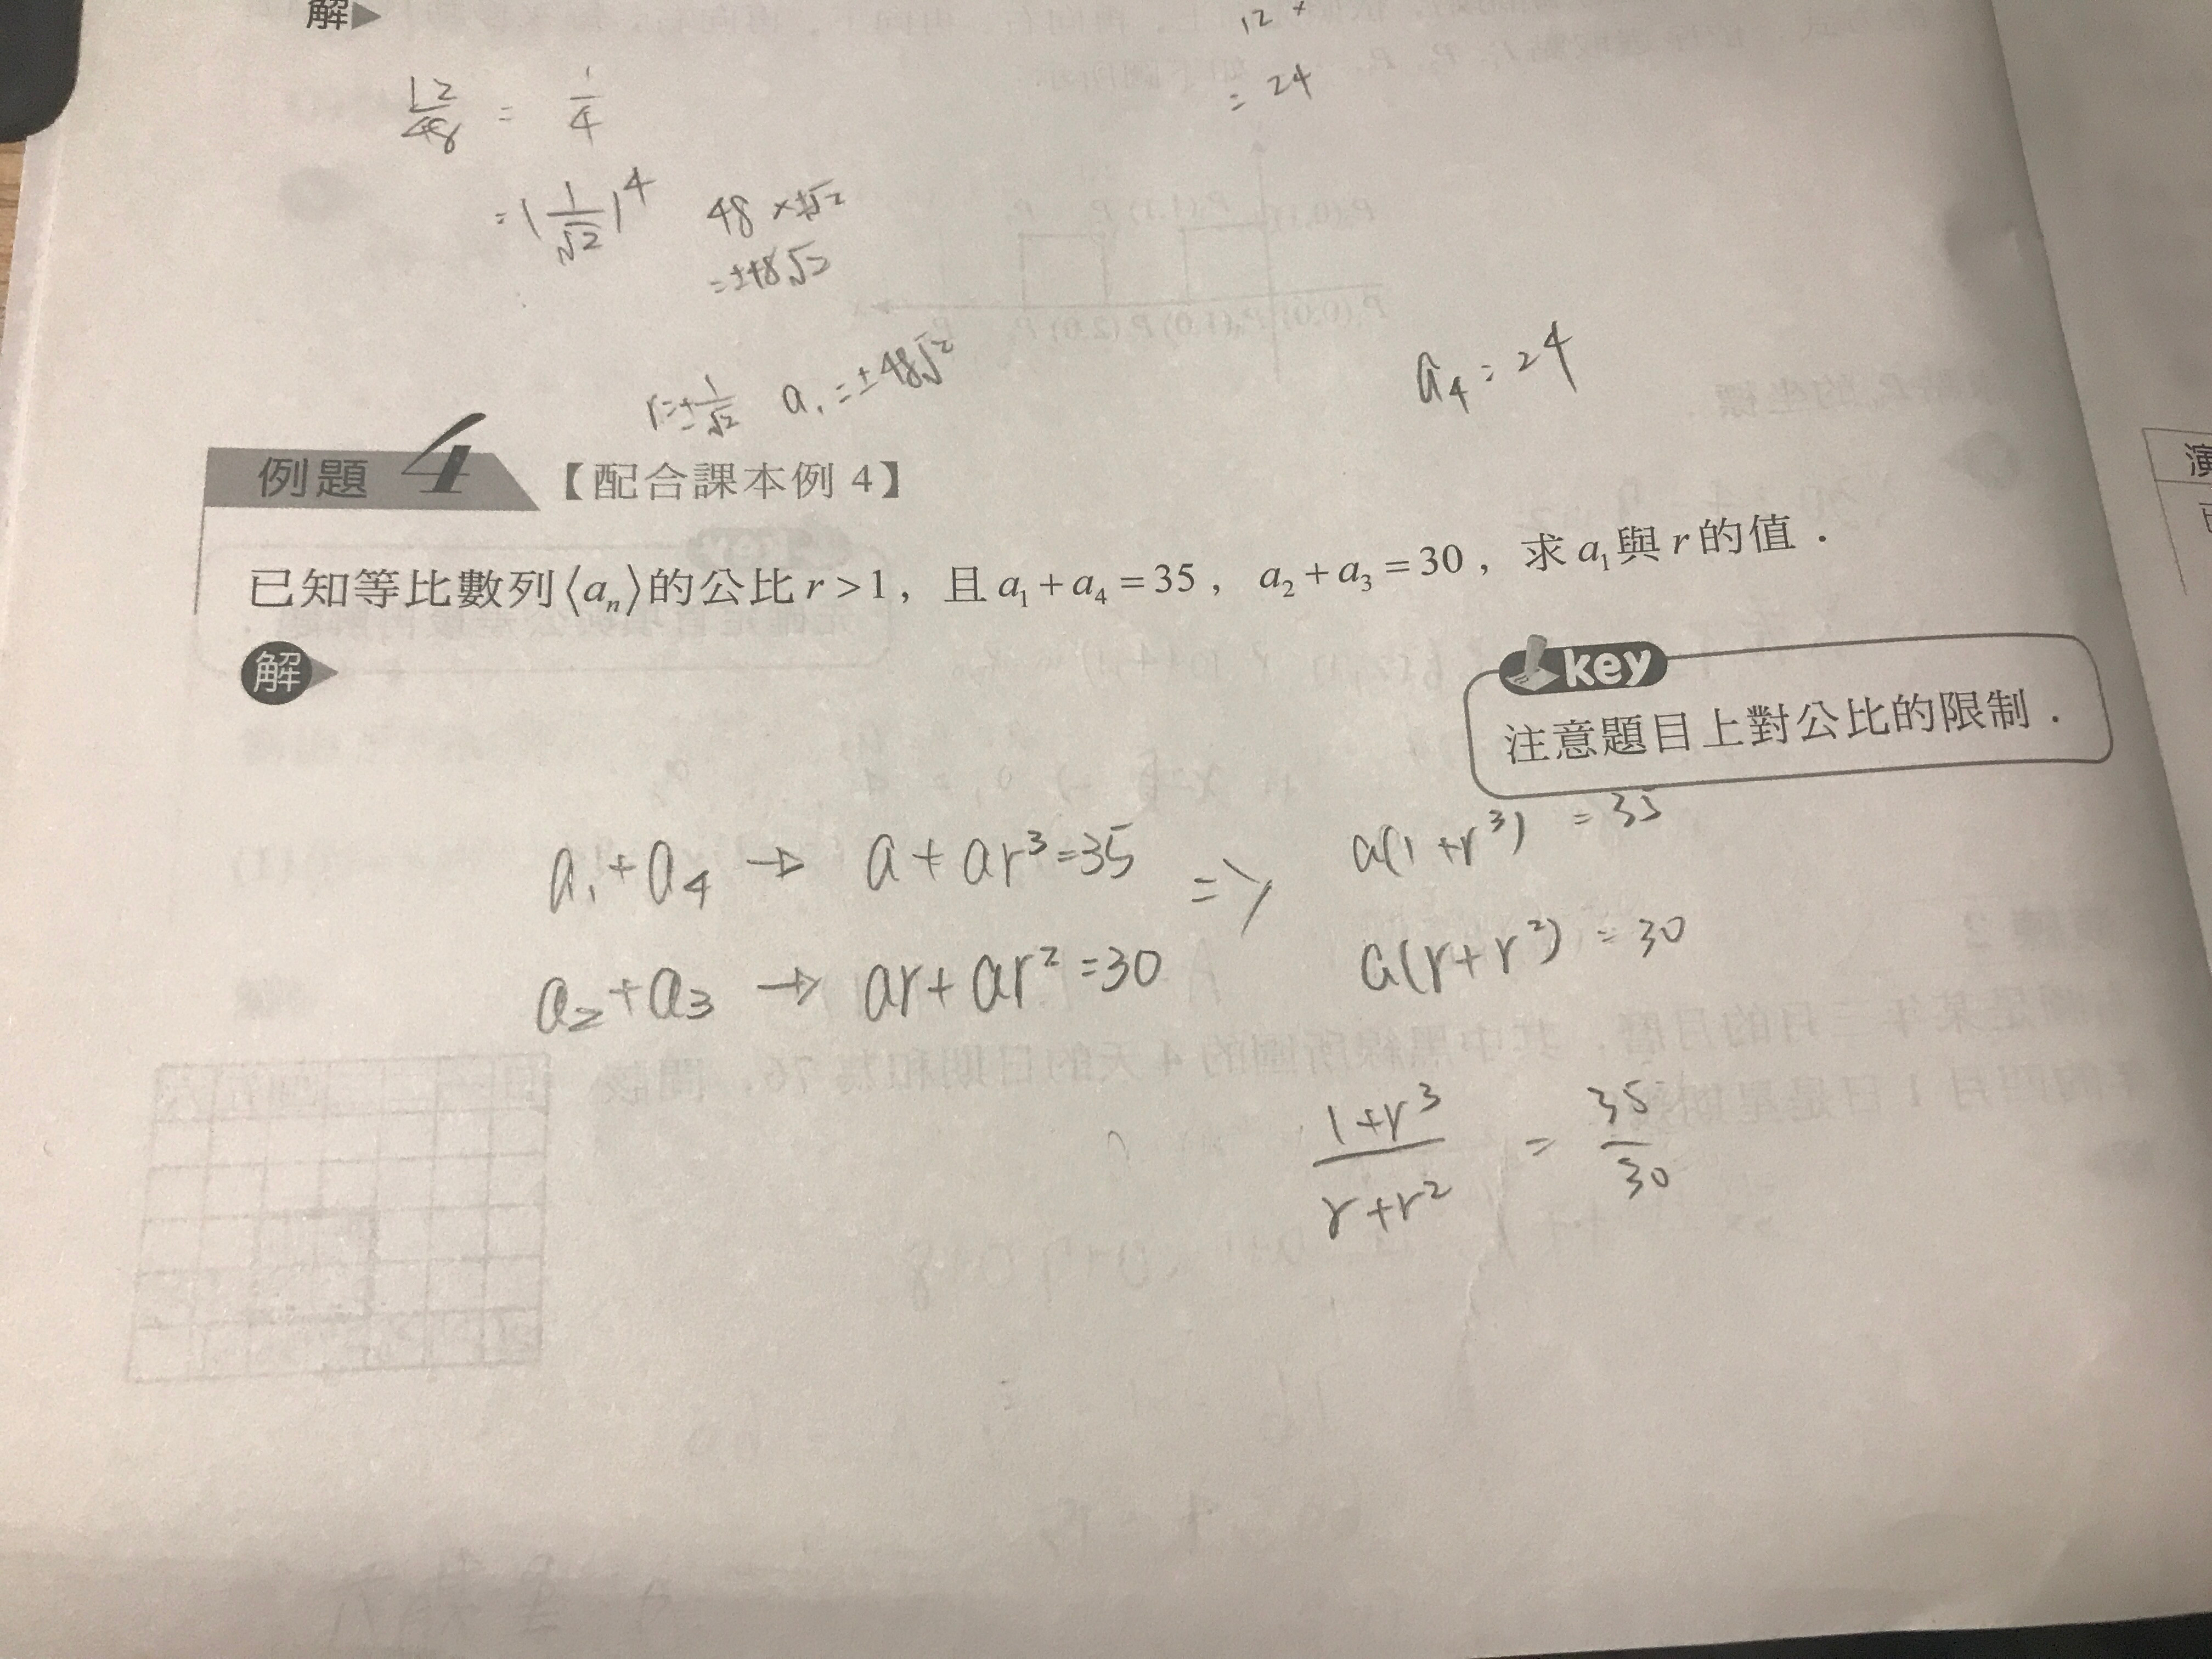 解
12 ×
= 24
12/48 = 1/4
= (1/√2)^4
48 × ±√2
= ±48√2
r = ±1/√2 a₁ = ±48√2
a₄ = 24
例題 4 【配合課本例 4】
已知等比數列⟨aₙ⟩的公比 r > 1，且 a₁ + a₄ = 35，a₂ + a₃ = 30，求 a₁ 與 r 的值．
解
key
注意題目上對公比的限制．
a₁ + a₄ → a + ar³ = 35 => a(1 + r³) = 35
a₂ + a₃ → ar + ar² = 30 a(r + r²) = 30
(1 + r³)/(r + r²) = 35/30
演